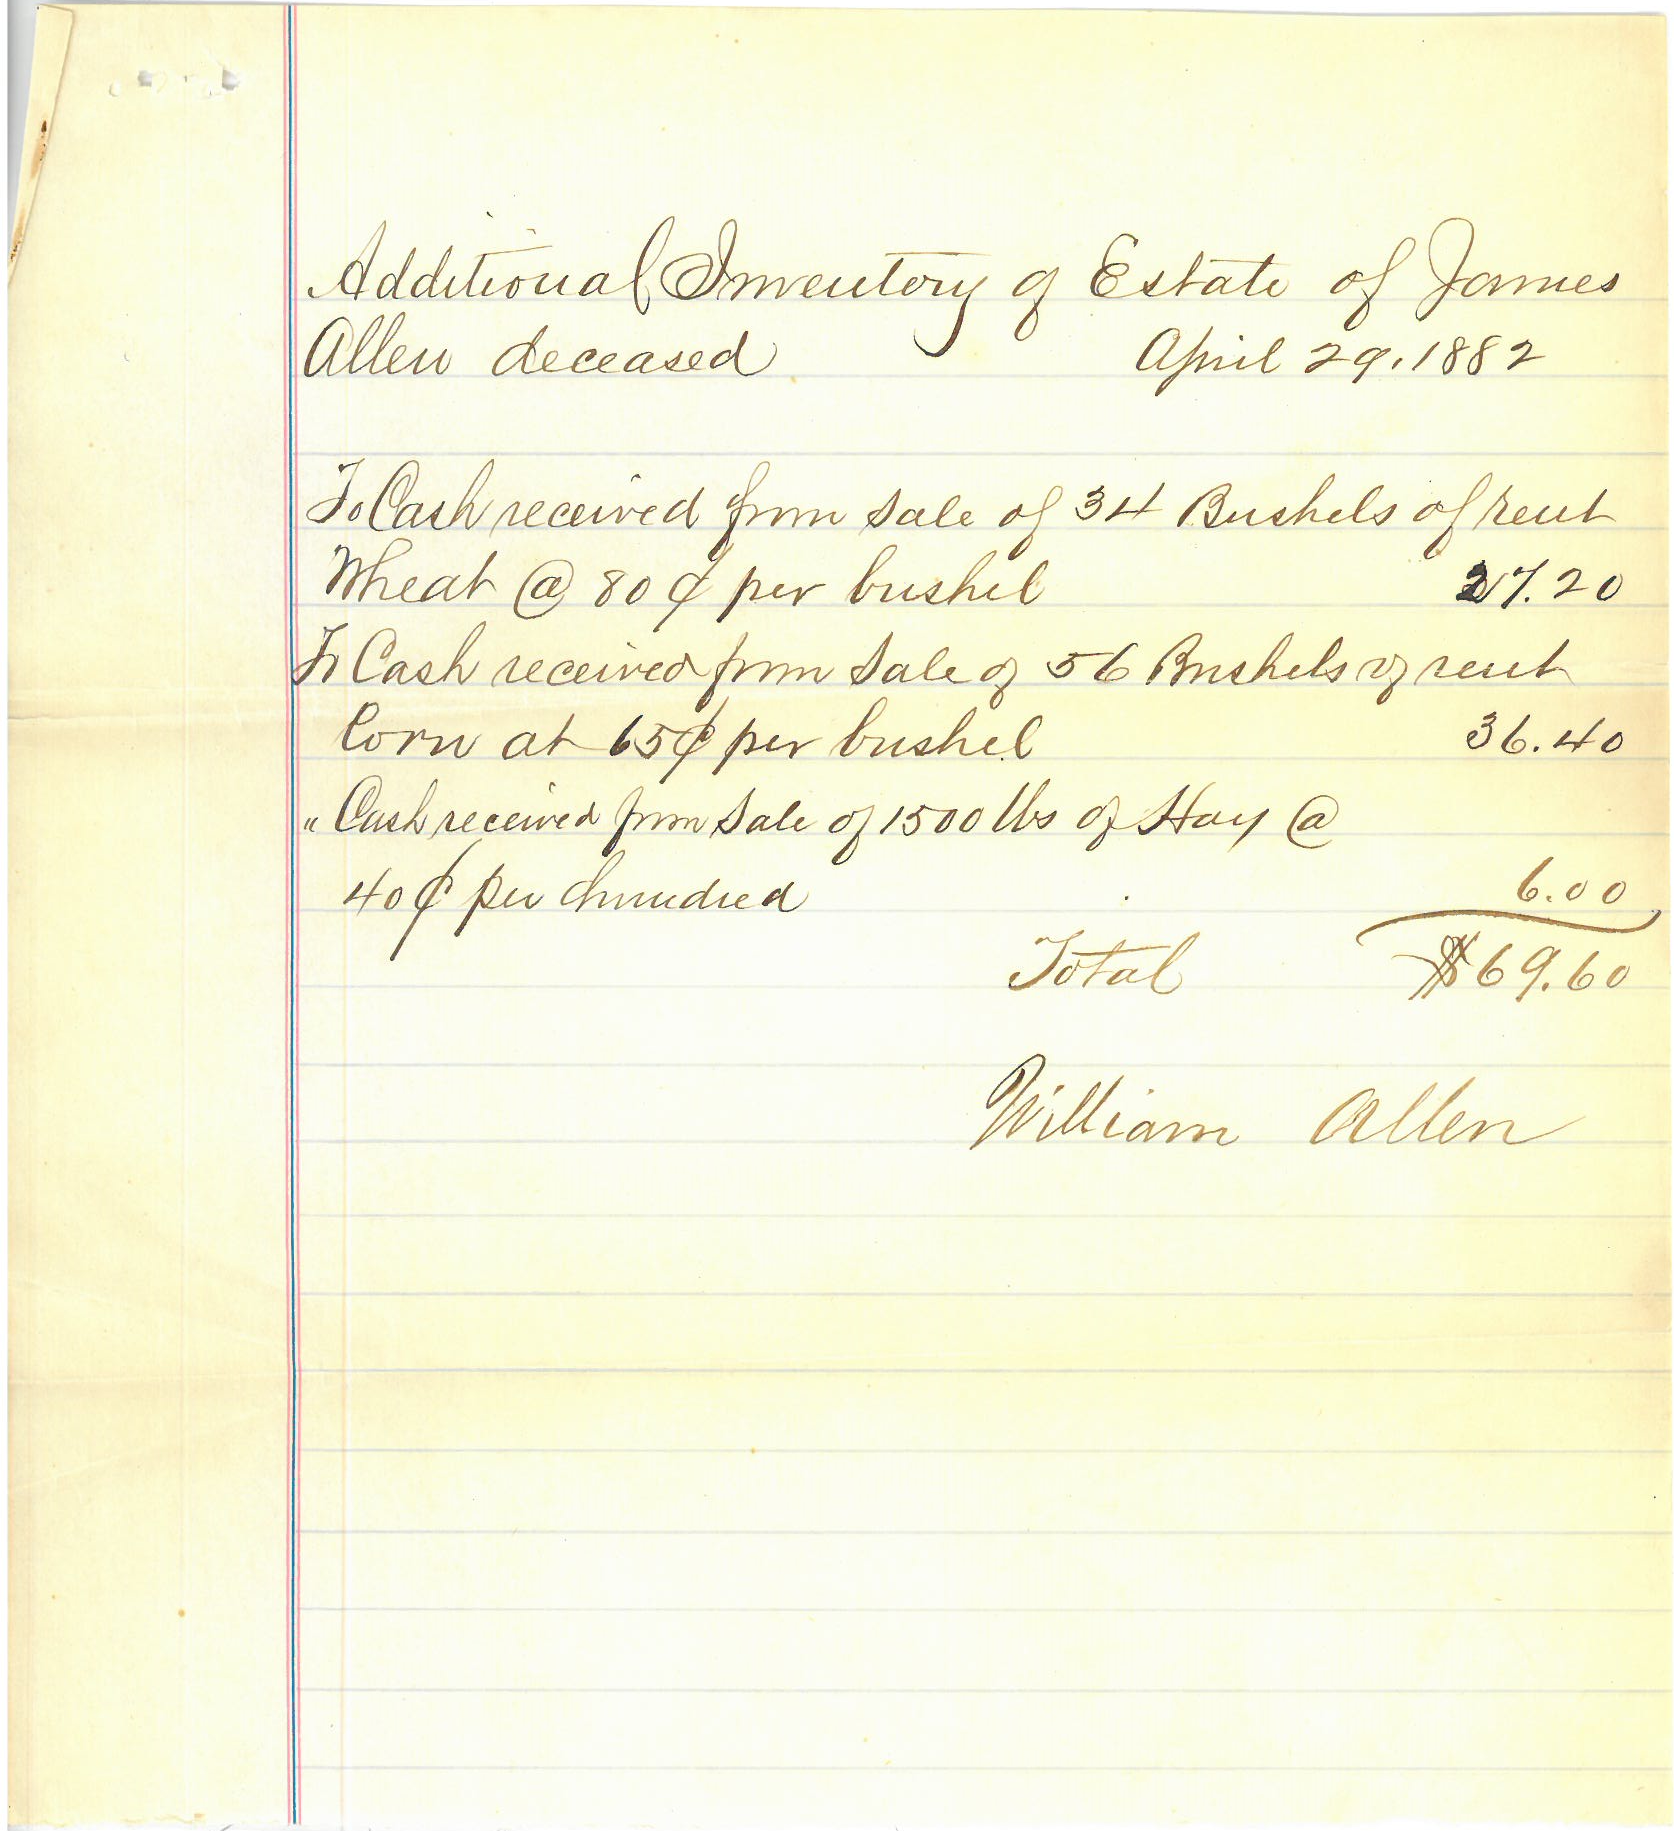 Additional Inventory of Estate of James
Allen deceased April 29, 1882
To Cash received from sale of 34 Bushels of rent
Wheat @ 80 ¢ per bushel 27.20
To Cash received from sale of 56 Bushels of rent
Corn at 65¢ per bushel 36.40
" Cash received from sale of 1500 lbs of Hay @
40 ¢ per hundred 6.00
Total $69.60
William Allen